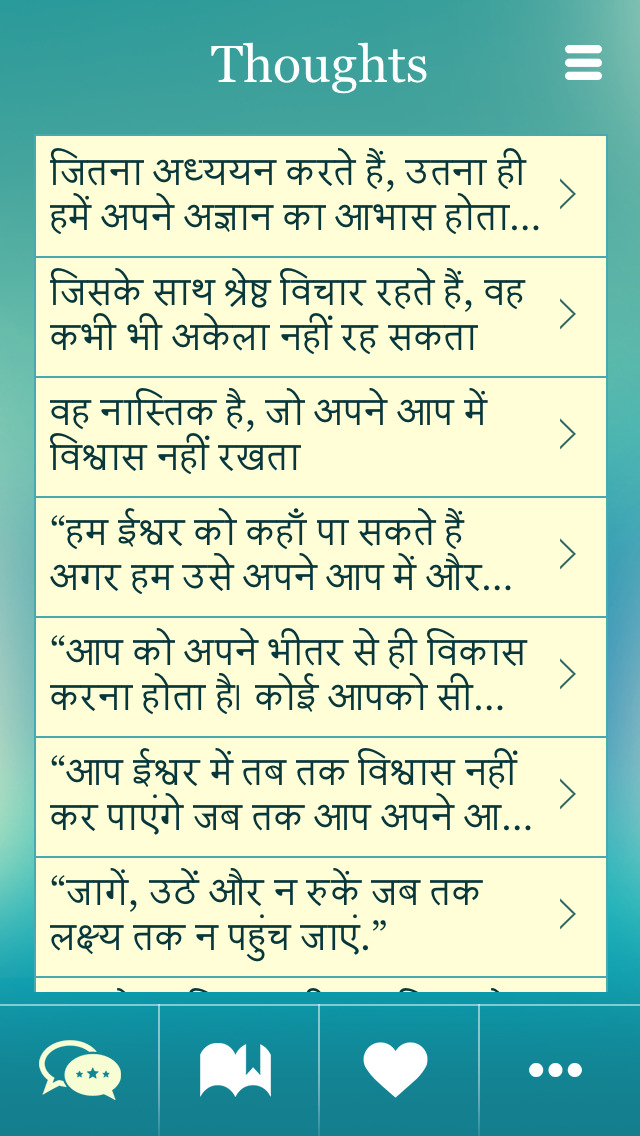 Thoughts
जितना अध्ययन करते हैं, उतना ही
हमें अपने अज्ञान का आभास होता...
जिसके साथ श्रेष्ठ विचार रहते हैं, वह
कभी भी अकेला नहीं रह सकता
वह नास्तिक है, जो अपने आप में
विश्वास नहीं रखता
“हम ईश्वर को कहाँ पा सकते हैं
अगर हम उसे अपने आप में और...
“आप को अपने भीतर से ही विकास
करना होता है। कोई आपको सी...
“आप ईश्वर में तब तक विश्वास नहीं
कर पाएंगे जब तक आप अपने आ...
“जागें, उठें और न रुकें जब तक
लक्ष्य तक न पहुंच जाएं.”